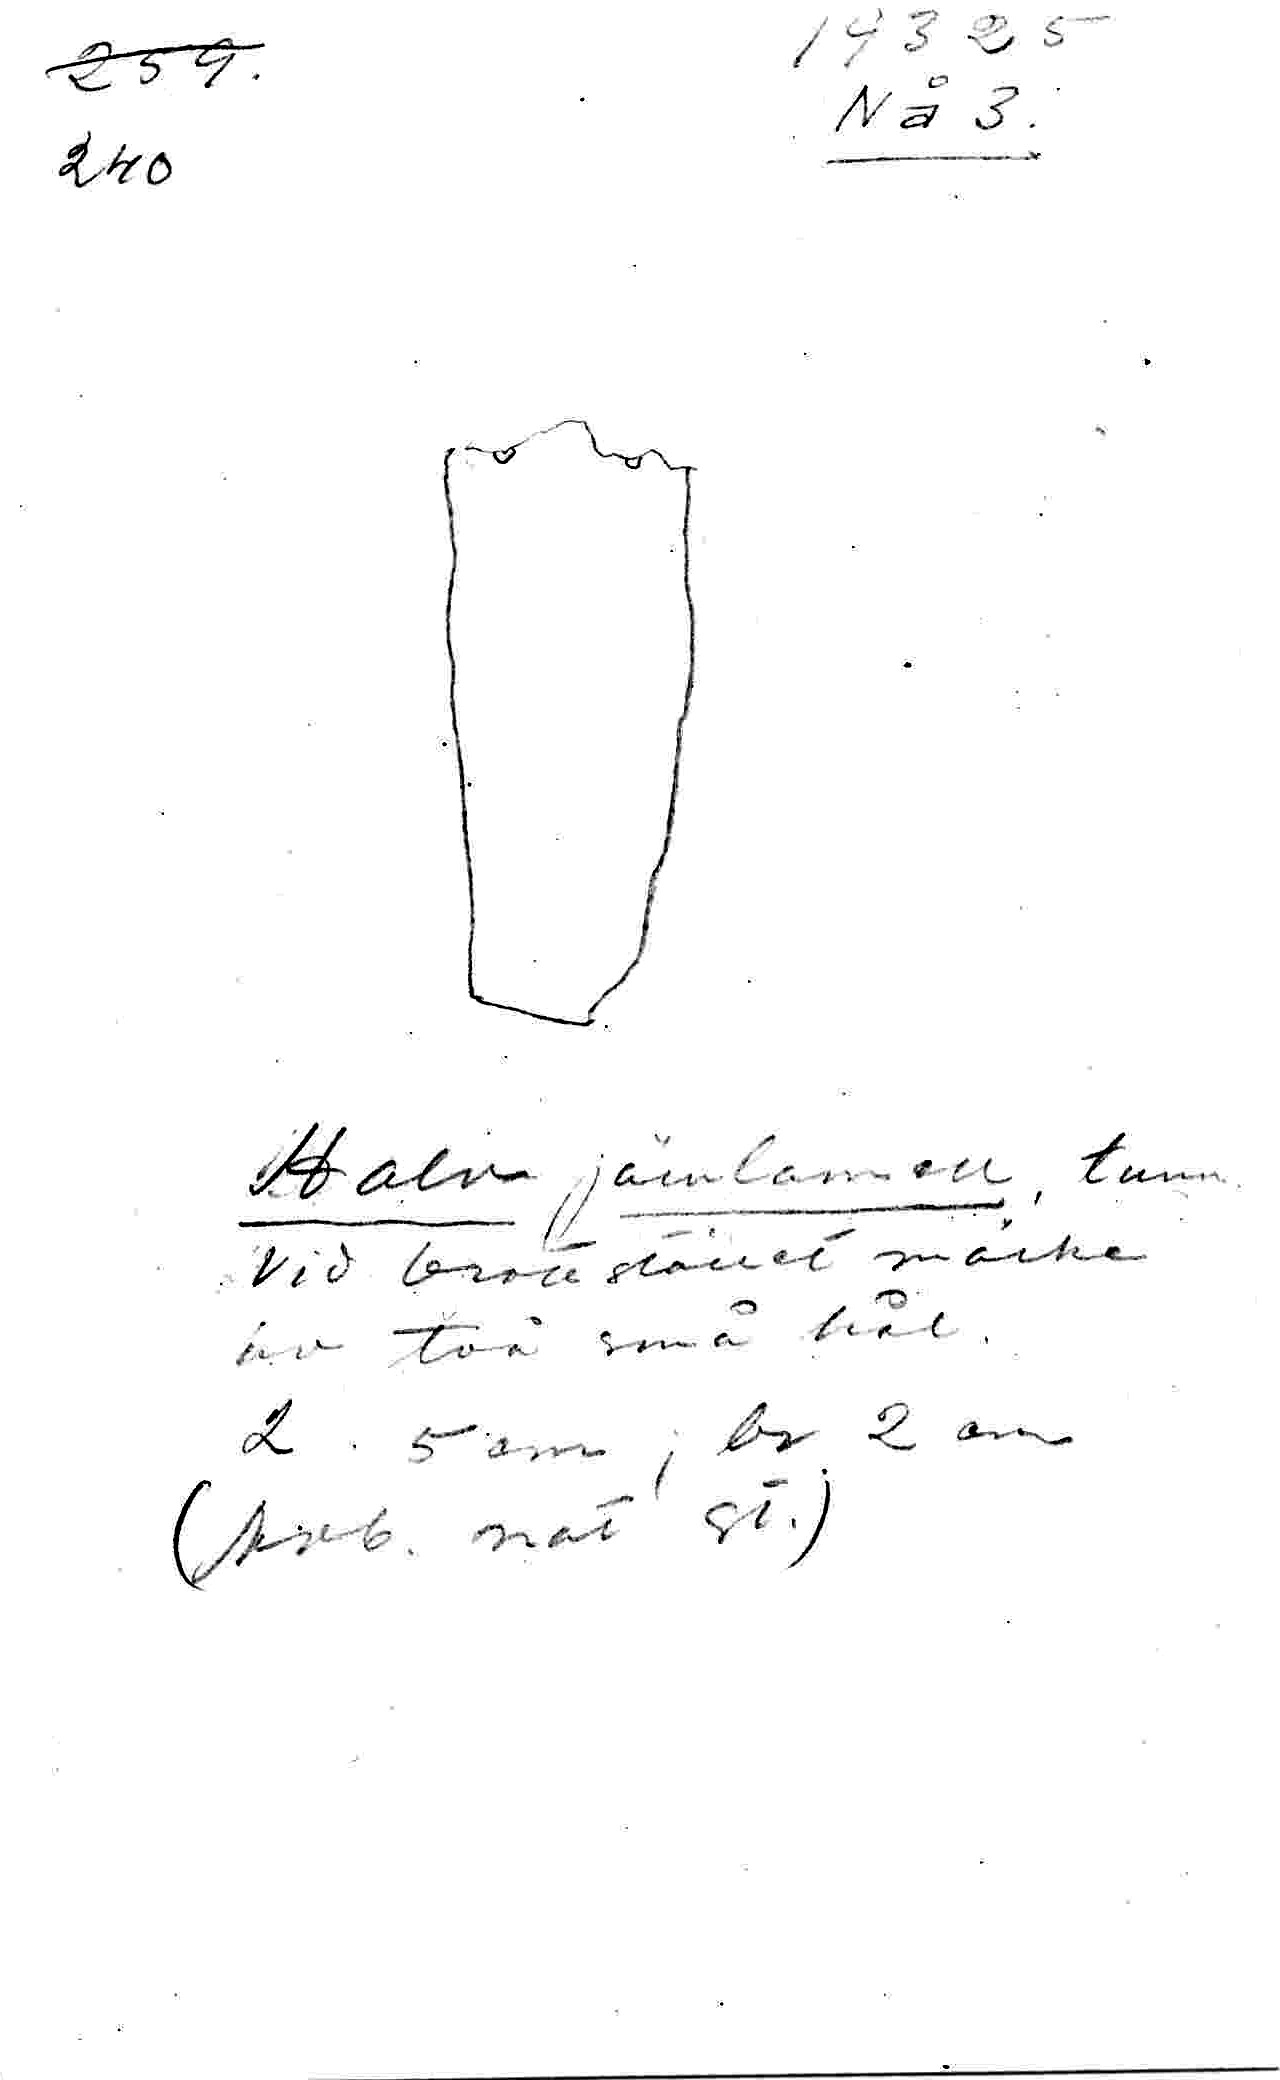 259.
240
14325
Nå 3.
Halv järnlamell, tunn.
Vid brottstället märke
av två små hål.
L. 5 cm, br 2 cm
(Avb. nat st.)